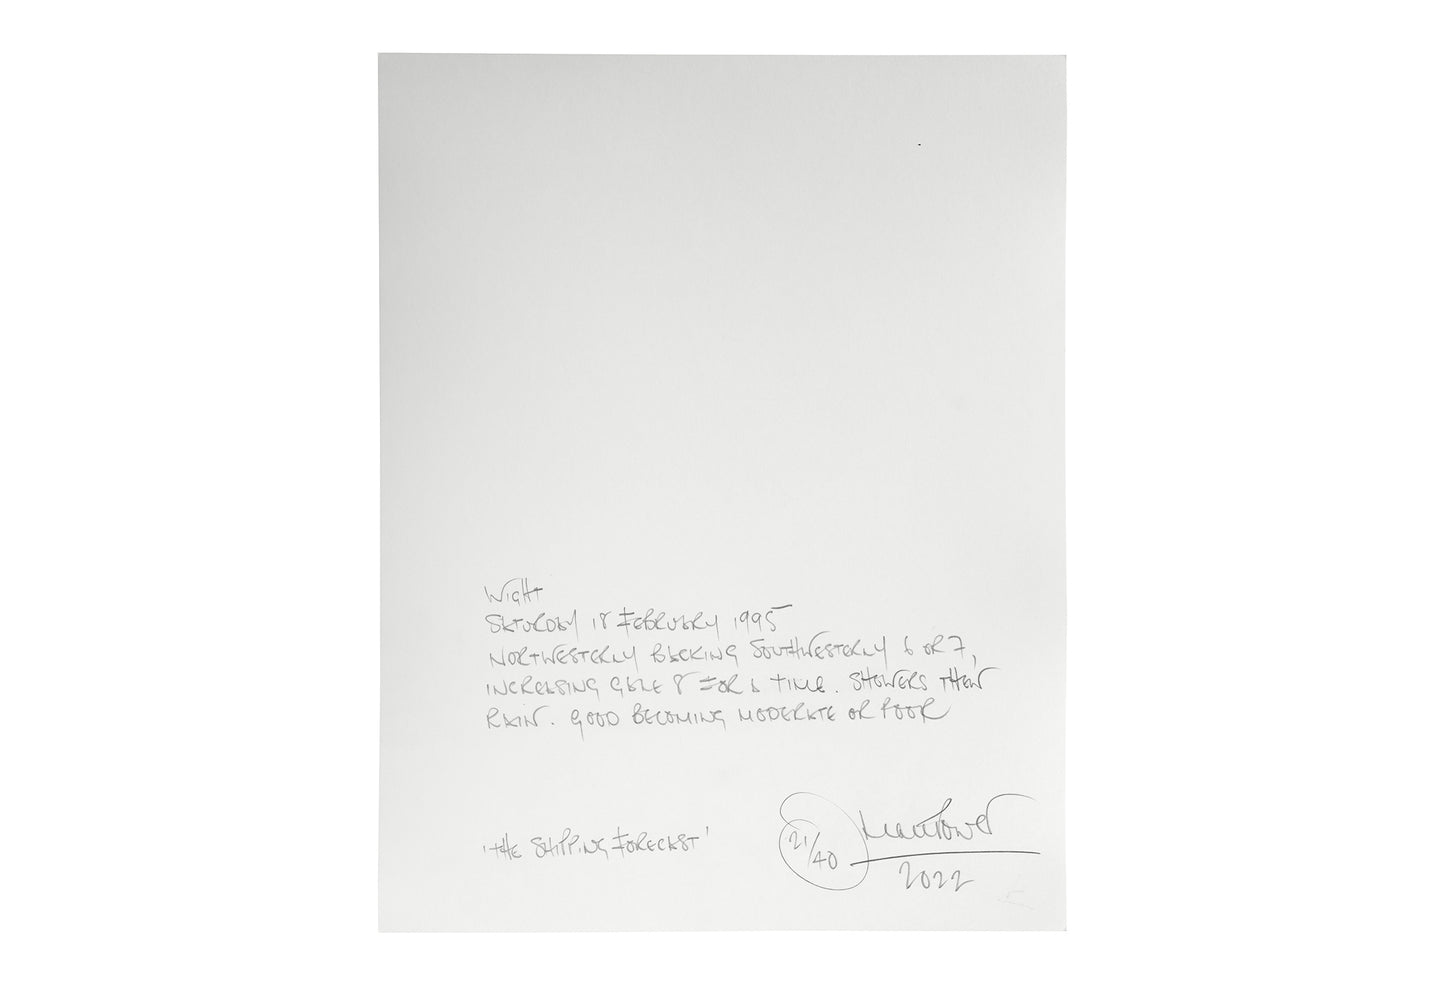 Wight
SATURDAY 18 FEBRUARY 1995
NORTWESTERLY BACKING SOUTHWESTERLY 6 OR 7,
INCREASING GALE 8 FOR A TIME. SHOWERS THEN
RAIN. GOOD BECOMING MODERATE OR POOR
'THE SHIPPING FORECAST'
21/40
2022